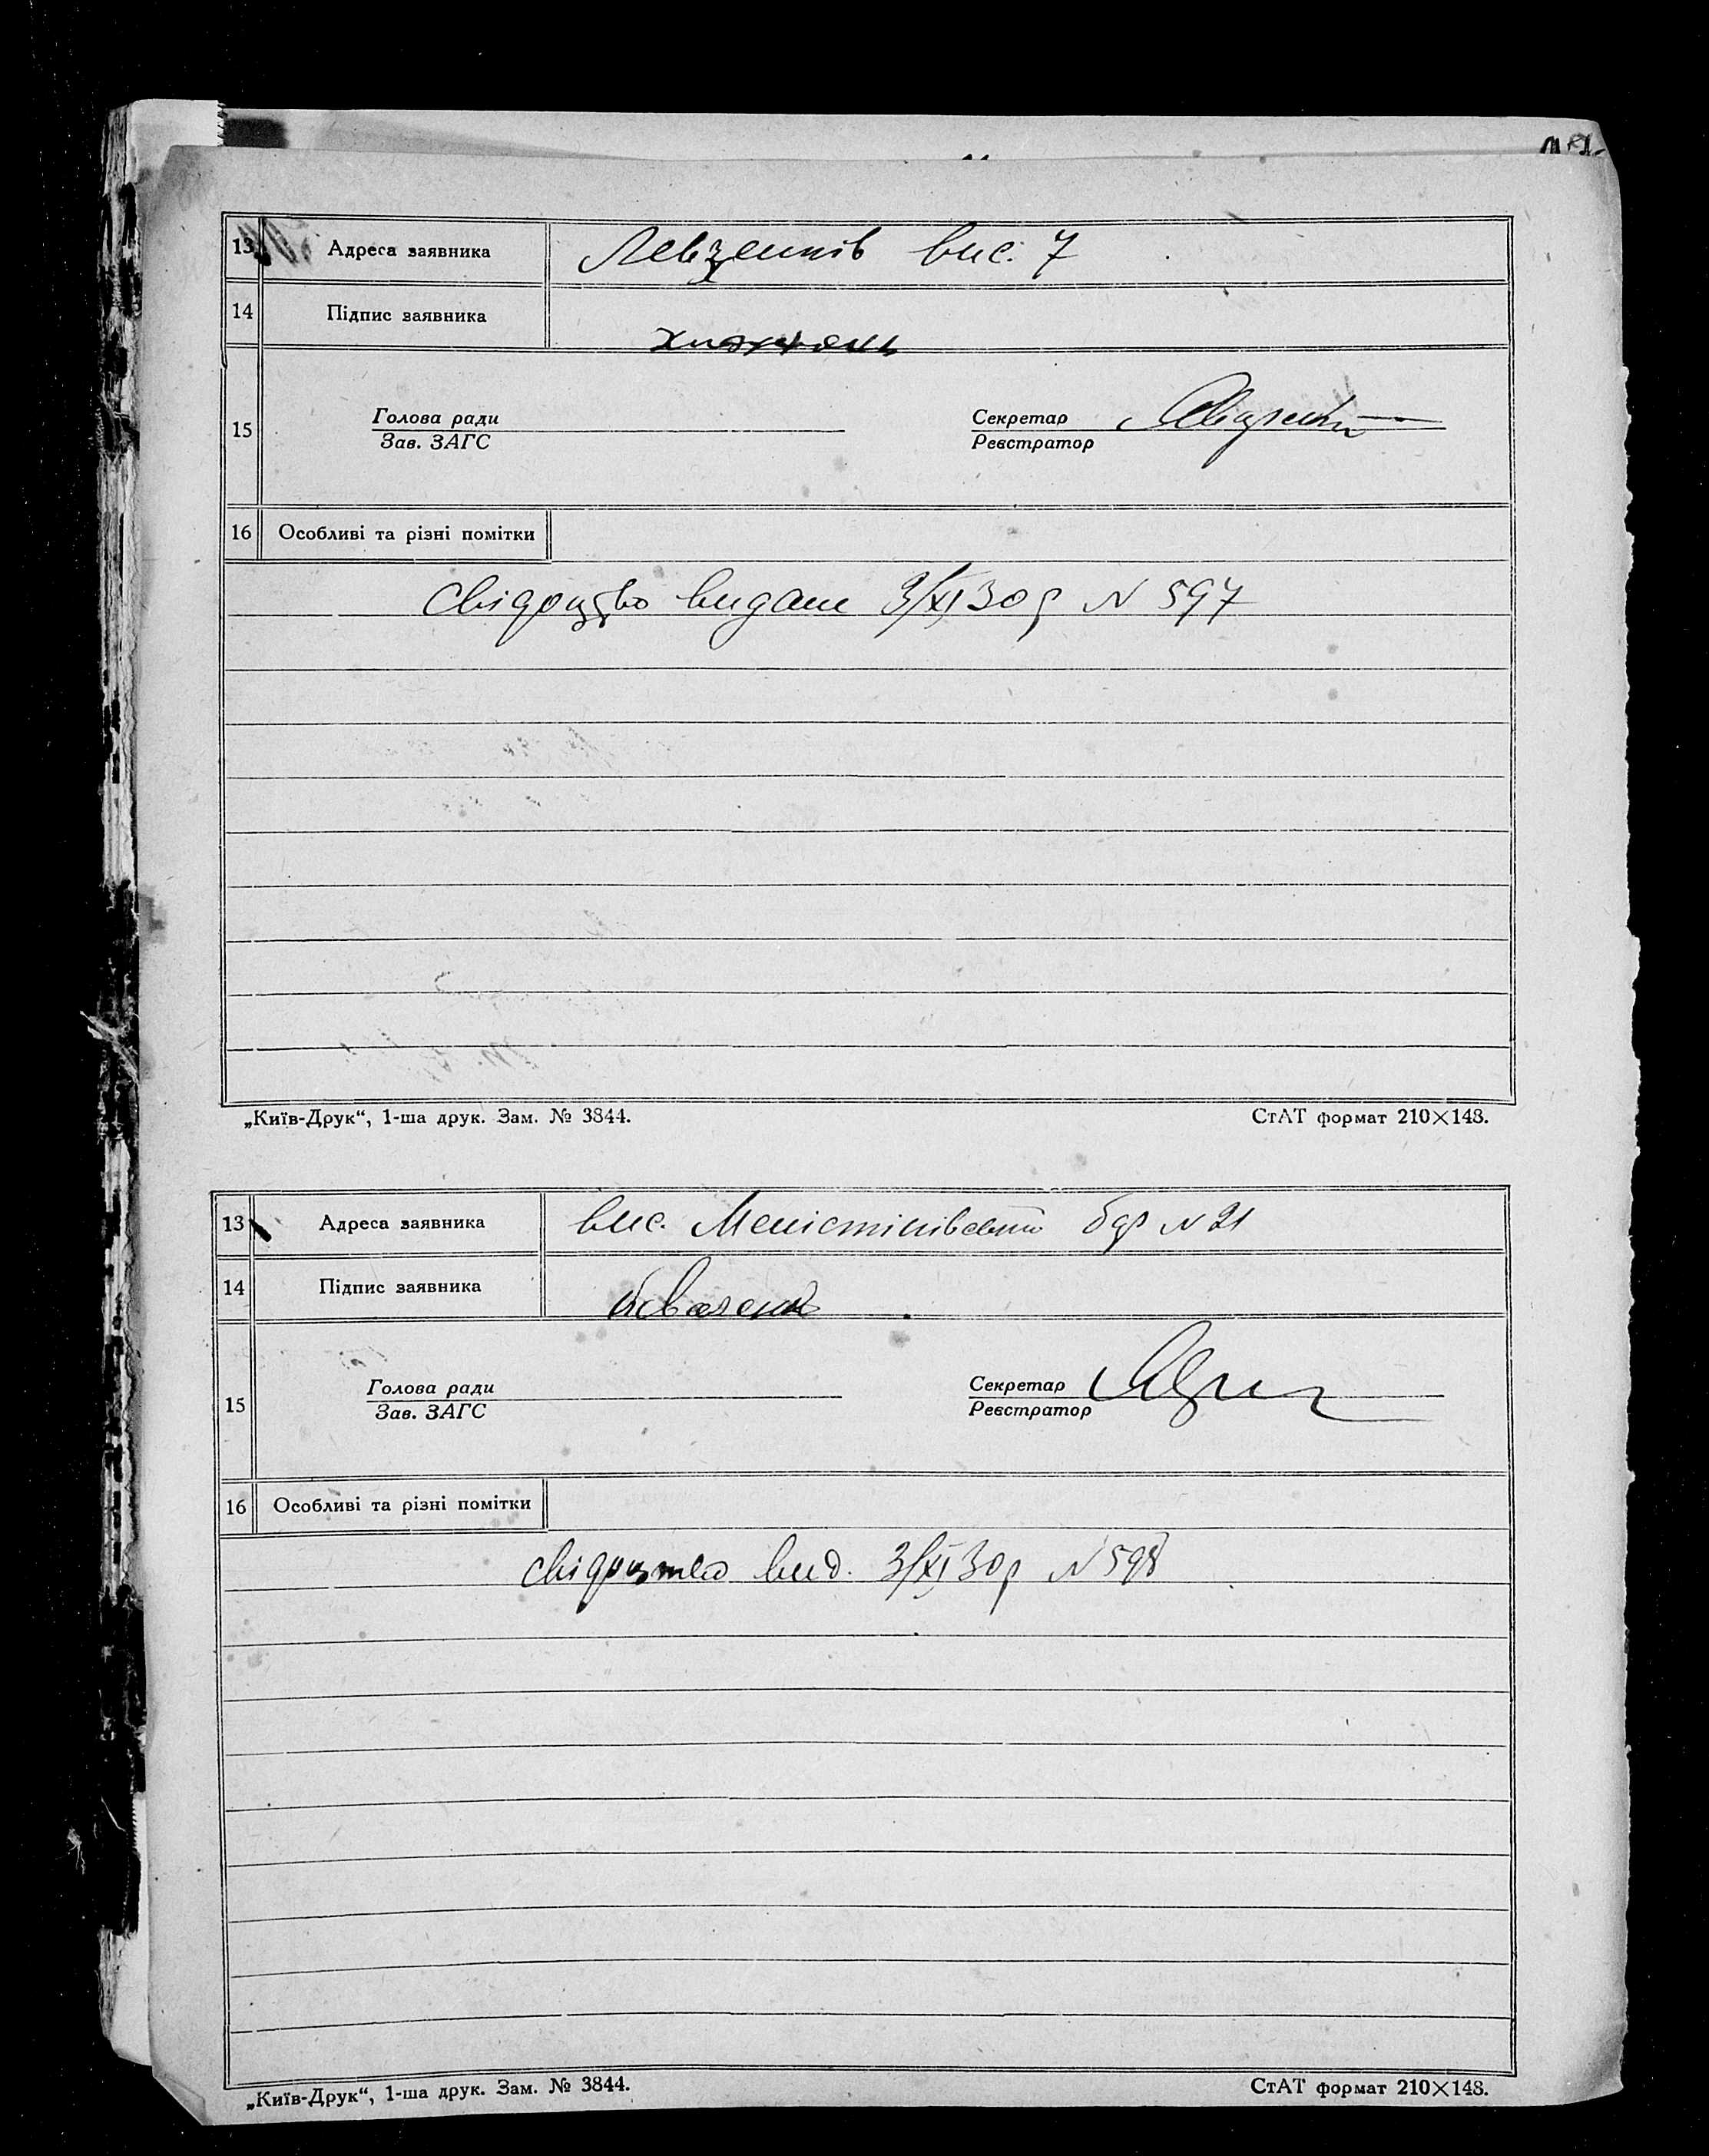 13 Адреса заявника вис. 7
14 Підпис заявника
15 Голова ради Секретар
Зав. ЗАГС Реєстратор
16 Особливі та різні помітки
Свідоцтво видане 3/XI 30 р N 597
„Київ-Друк“, 1-ша друк. Зам. № 3844. СтАТ формат 210×148.
13 Адреса заявника вис. буд N 21
14 Підпис заявника
15 Голова ради Секретар
Зав. ЗАГС Реєстратор
16 Особливі та різні помітки
свідоцтво вид. 3/XI 30 р N 598
„Київ-Друк“, 1-ша друк. Зам. № 3844. СтАТ формат 210×148.